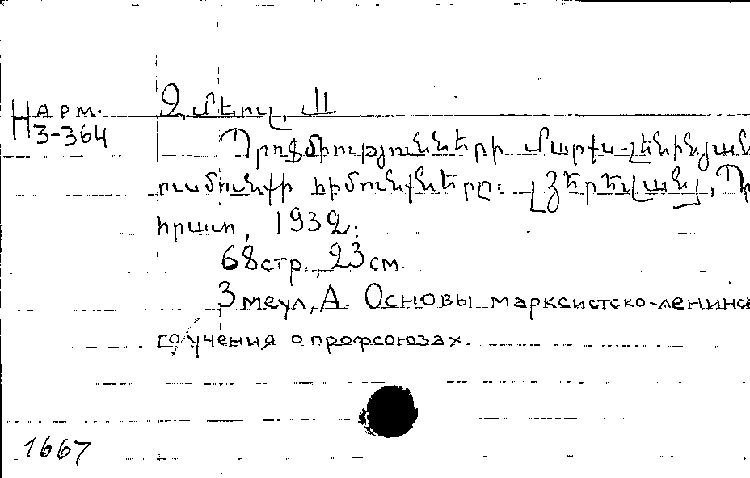 Н АРМ.
3-364
Զմեուլ, Ա
Պրոֆմիությունների մարքս-լենինյան
ուսմունքի հիմունքները: [Յերեվան], Պ
հրատ, 1932.
68 стр. 23 см
Змеул, А Основы марксистско-ленинс
го учения о профсоюзах.
1667